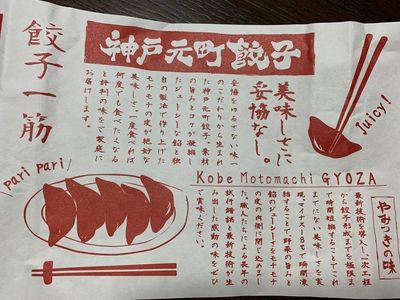 餃子一筋
神戸元町餃子
美味しさに
妥協なし。
妥協をゆるさない味へ
のこだわりから生まれ
た神戸元町餃子。素材
の旨みとコクが凝縮し
たジューシーな餡と独
自の製法で作り上げた
モチモチの皮が絶妙な
美味しさ。一度食べれば
何度でも食べたくなる
と評判の味をご家庭に
お届けします。
Juicy!
Pari Pari
Kobe Motomachi GYOZA
やみつきの味
最新技術を導入し、一次工程
から餃子形成までを極限ま
で時間短縮することでこれ
までにない美味しさを実
現。マイナス18℃で瞬間凍
結することで、野菜の旨みと
餡のジューシーさをモチモチ
の皮の内側に閉じ込めまし
た。職人たちによる長年の
試行錯誤と最新技術が生
み出した感動の味をぜひ
ご賞味ください。